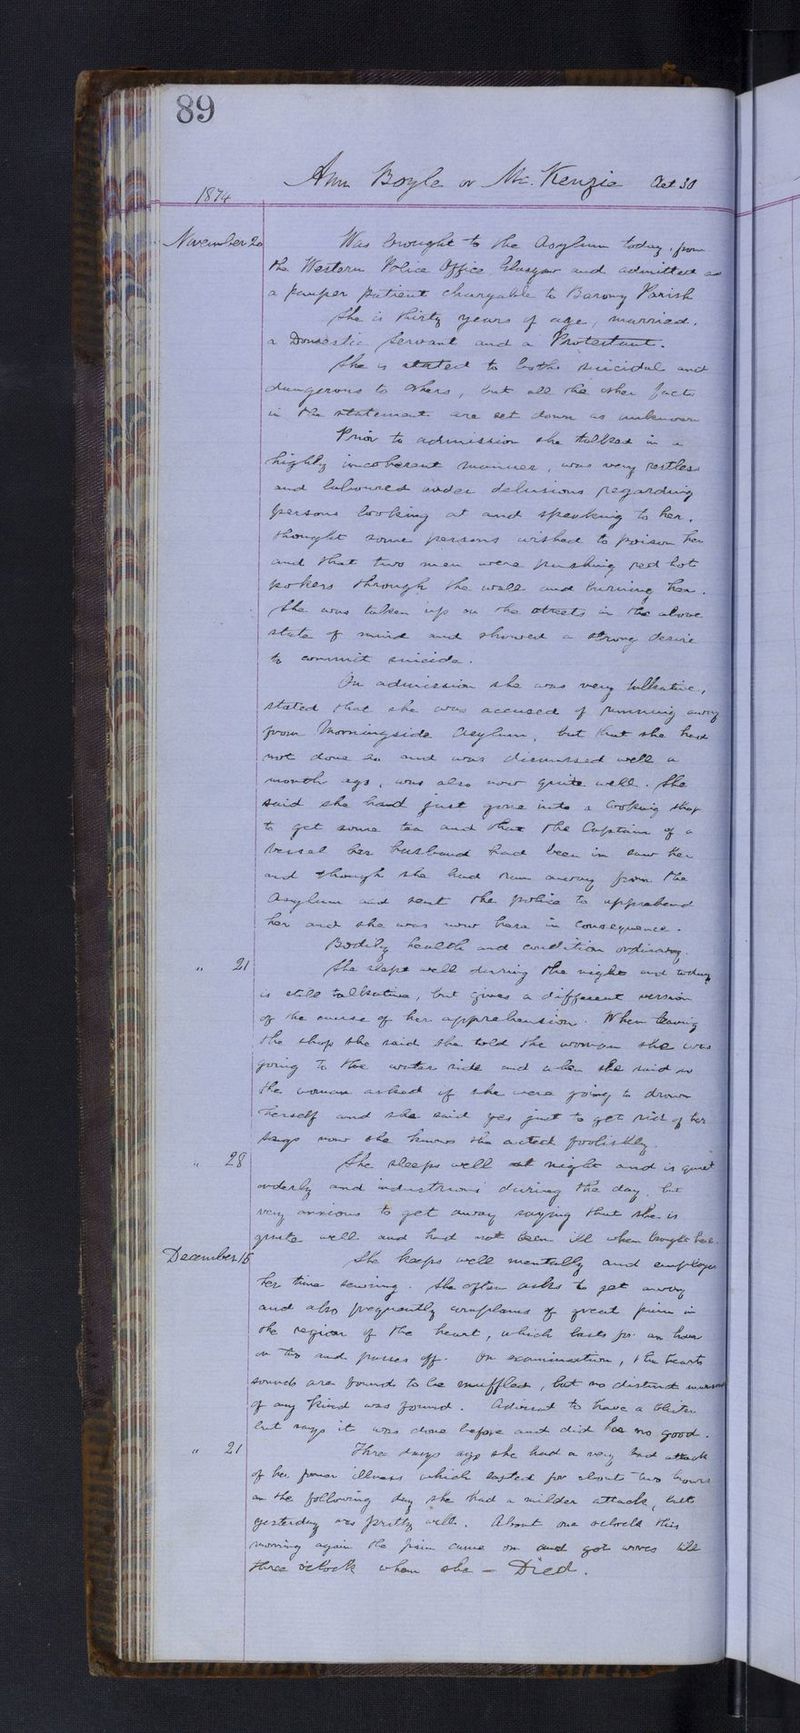 89
Ann Boyle or Mc. Kenzie Aet 30
1874
November 20 Was brought to the Asylum today, from
the Western Police Office Glasgow and admitted as
a pauper patient chargable to Barony Parish
She is thirty years of age, married,
a Domestic Servant and a Protestant.
She is stated to both suicidal and
dangerous to others, but all the other facts
in the statement are set down as unknown
Prior to admission she talked in a
highly incoherent manner, was very restless
and laboured under delusions regarding
persons looking at and speaking to her,
thought some persons wished to poison her
and that two men were pushing red hot
pokers through the wall and burning her.
She was taken up on the streets in the above
state of mind and showed a strong desire
to commit suicide.
On admission she was very talkative,
stated that she was accused of running away
from Morningside Asylum, but that she had
not done so and was dismissed well a
month ago, was also now quite well. She
said she had just gone into a Cooking shop
to get some tea and that the Captain of a
vessel her husband had been in saw her
and though she had run away from the
Asylum and sent the police to apprehend
her and she was now here in consequence.
Bodily health and condition ordinary.
" 21 She slept well during the night and today
is still talkative, but gives a different version
of the cause of her apprehension. When leaving
the shop she said she told the woman she was
going to the water side and when she said so
the woman asked if she were going to drown
herself and she said yes just to get rid of her
says now she knows she acted foolishly.
" 28 She sleeps well at night and is quiet
orderly and industrious during the day, but
very anxious to get away saying that she is
quite well and had not been ill when brought here.
December 15 She keeps well mentally and employs
her time sewing. She often asks to get away
and also frequently complains of great pain in
the region of the heart, which lasts for an hour
or two and passes off. On examination, the hearts
sounds are found to be muffled, but no distinct murmur
of any kind was found. Advised to have a blister
but says it was done before and did her no good.
" 21 Three days ago she had a very bad attack
of her former illness which lasted for about two hours
on the following day she had a milder attack, but
yesterday was pretty well. About one oclock this
morning again the pain came on and got worse till
three oclock when she – Died.